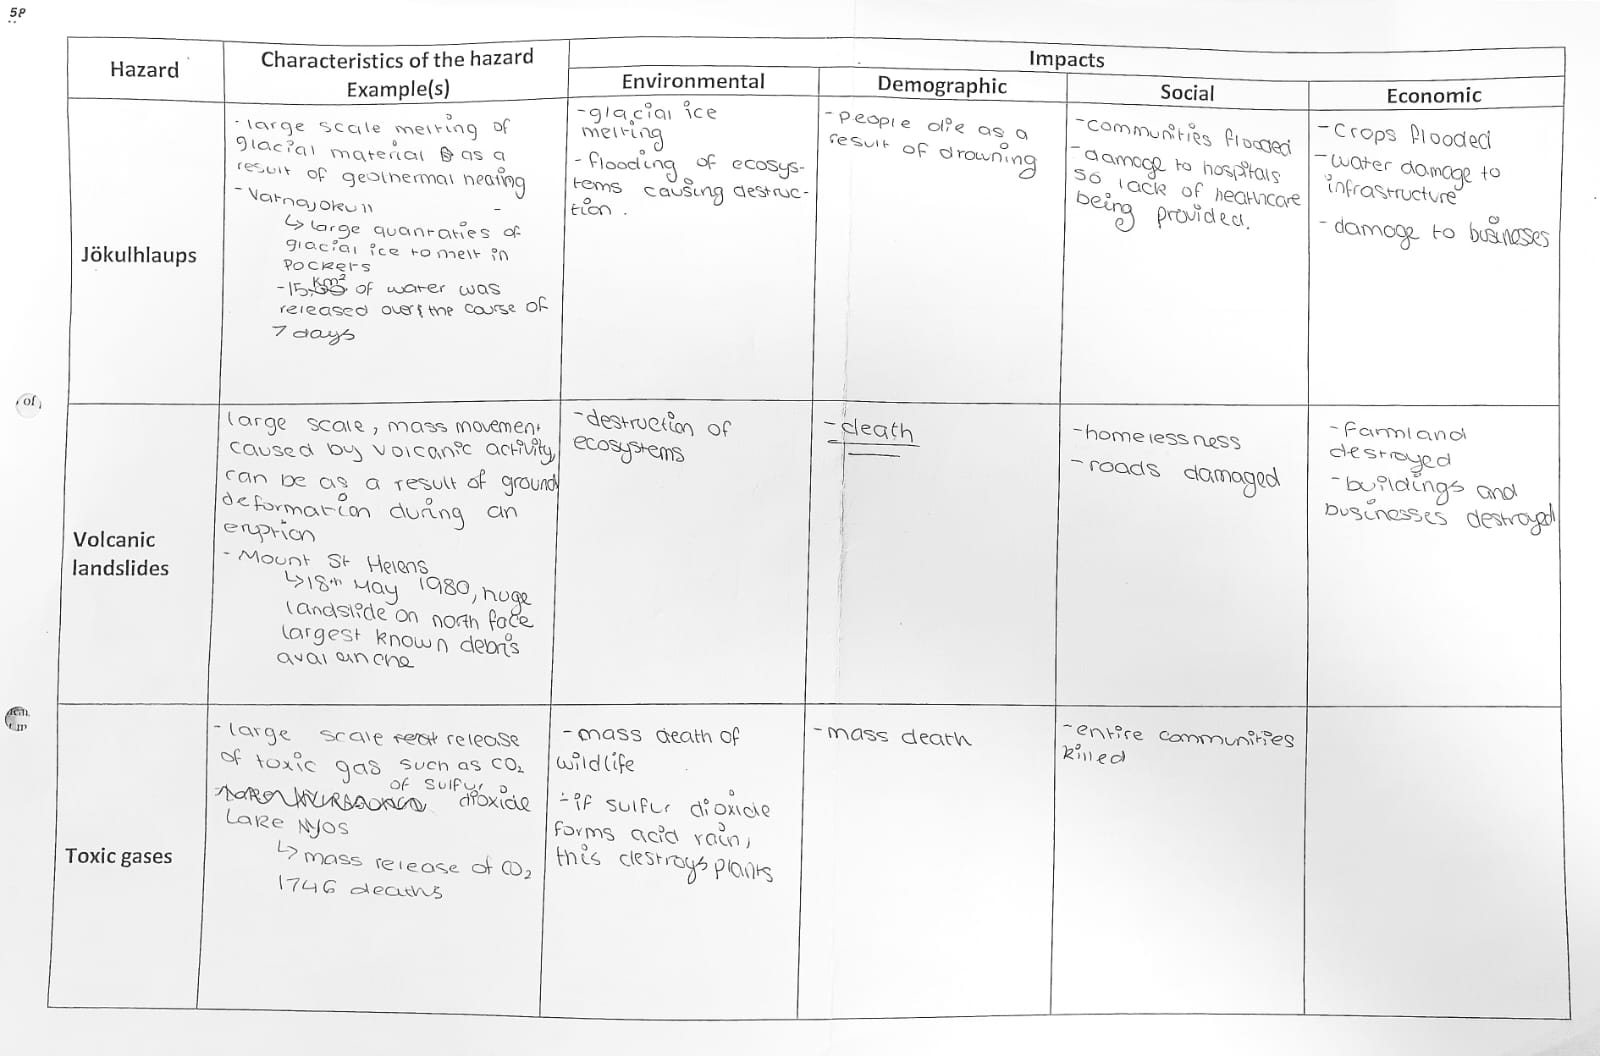 5P
Hazard
Characteristics of the hazard
Example(s)
Impacts
Environmental
Demographic
Social
Economic
Jökulhlaups
- large scale melting of
glacial material as a
result of geothermal heating
- Vatnajokull
↳ large quantaties of
glacial ice to melt in
pockets
- 15 km² of water was
released over the course of
7 days
- glacial ice
melting
- flooding of ecosys-
tems causing destruc-
tion.
- people die as a
result of drowning
- communities flooded
- damage to hospitals
so lack of healthcare
being provided.
- crops flooded
- water damage to
infrastructure
- damage to businesses
of
Volcanic
landslides
large scale, mass movement
caused by volcanic activity,
can be as a result of ground
deformation during an
eruption
- Mount St Helens
↳ 18th May 1980, huge
landslide on north face
largest known debris
avalanche
- destruction of
ecosystems
- death
- homelessness
- roads damaged
- farmland
destroyed
- buildings and
businesses destroyed
Toxic gases
- large scale release
of toxic gas such as CO₂
of sulfur
dioxide
Lake Nyos
↳ mass release of CO₂
1746 deaths
- mass death of
wildlife
- if sulfur dioxide
forms acid rain,
this destroys plants
- mass death
- entire communities
killed